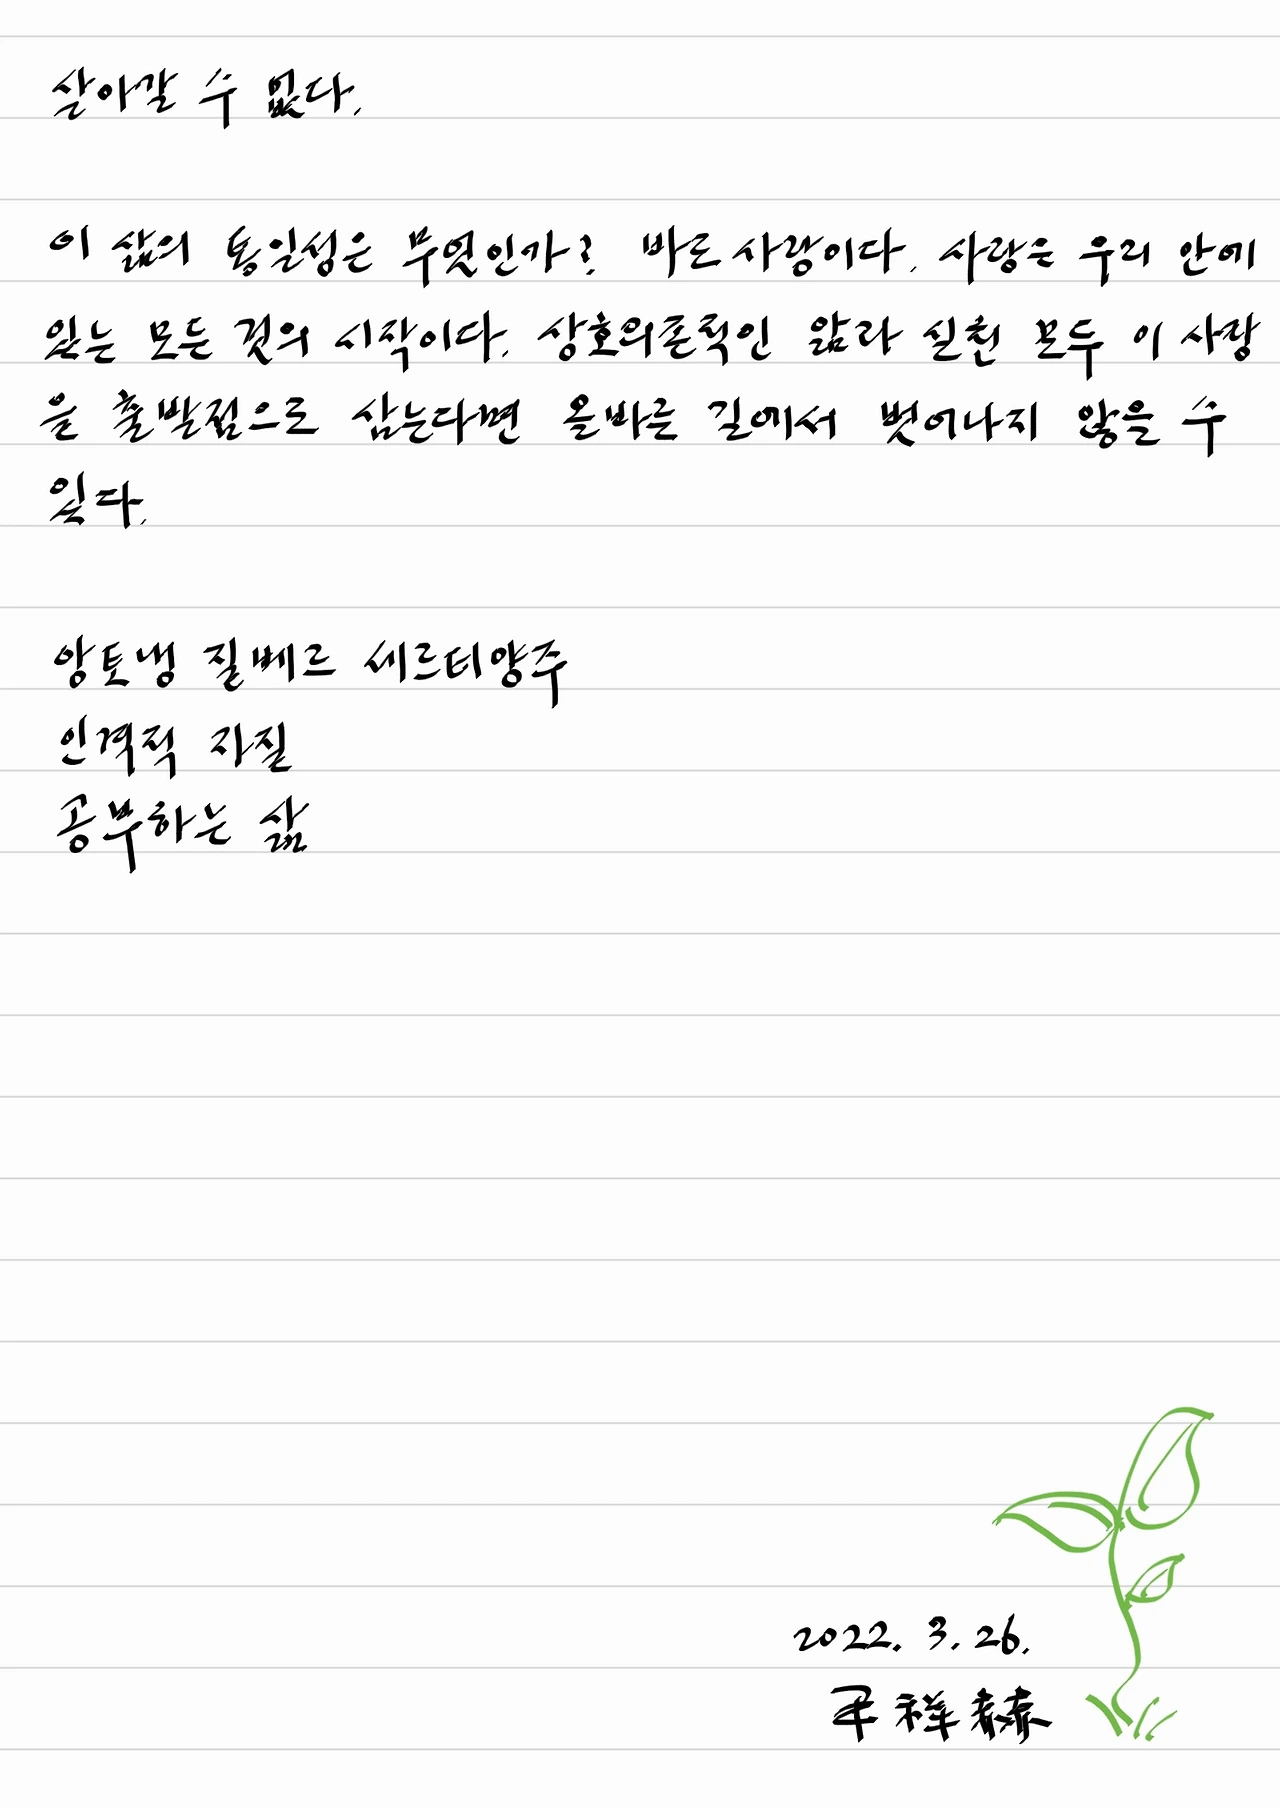 살아갈 수 없다.
이 삶의 통일성은 무엇인가? 바로 사랑이다. 사랑은 우리 안에
있는 모든 것의 시작이다. 상호의존적인 앎과 실천 모두 이 사랑
을 출발점으로 삼는다면 올바른 길에서 벗어나지 않을 수
있다.
앙토냉 질베르 세르티양주
인격적 자질
공부하는 삶
2022. 3. 26.
尹祥赫